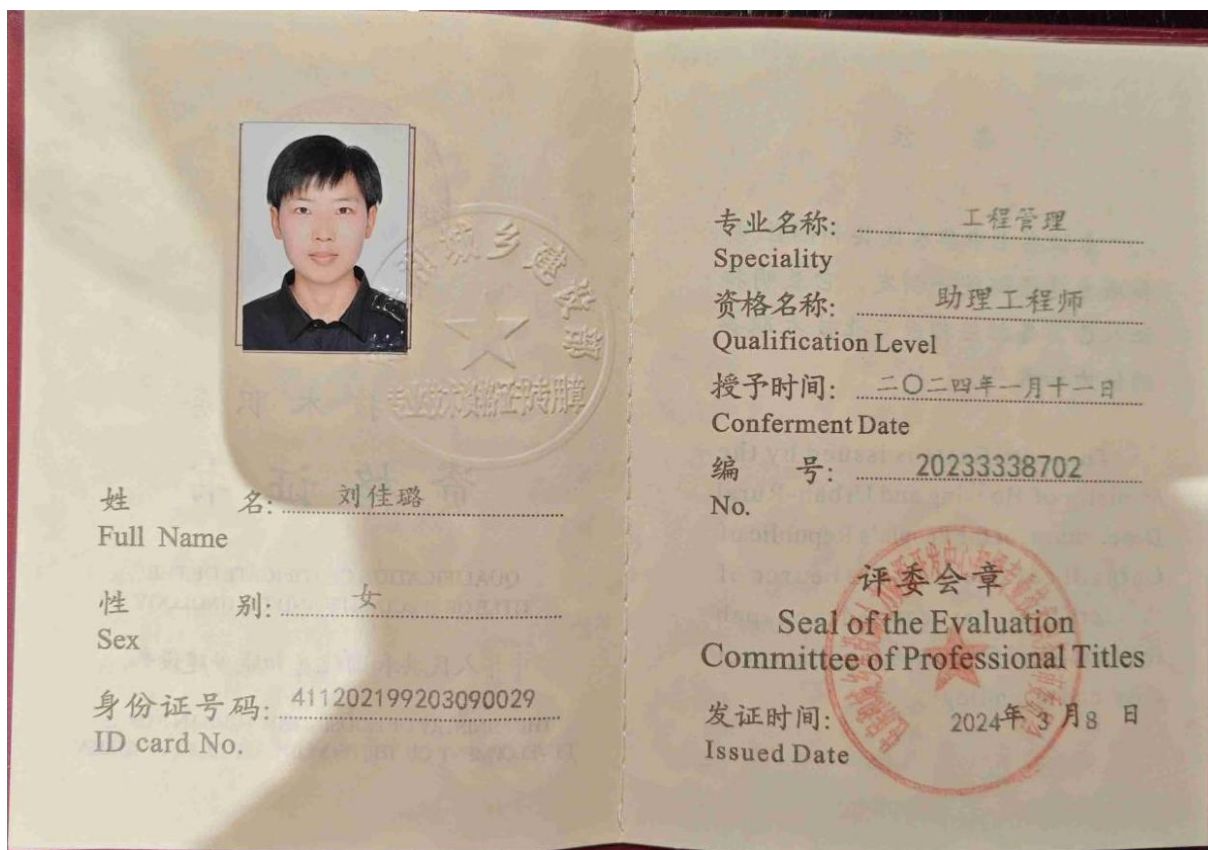 姓 名: 刘佳璐
Full Name
性 别: 女
Sex
身份证号码: 411202199203090029
ID card No.
城乡建设部
专业技术资格证书专用章
专业名称: 工程管理
Speciality
资格名称: 助理工程师
Qualification Level
授予时间: 二〇二四年一月十二日
Conferment Date
编 号: 20233338702
No.
评委会章
Seal of the Evaluation
Committee of Professional Titles
发证时间: 2024年 3 月8 日
Issued Date